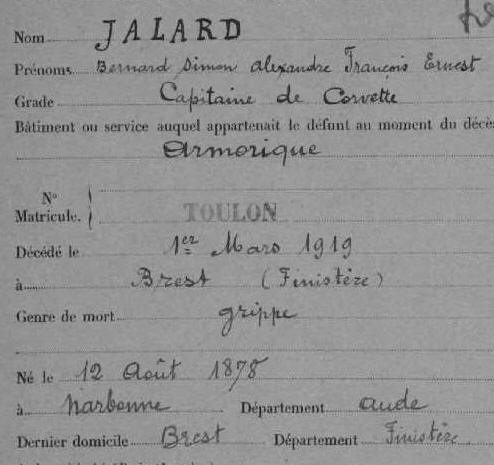 Nom JALARD
Prénoms Bernard Simon Alexandre François Ernest
Grade Capitaine de Corvette
Bâtiment ou service auquel appartenait le défunt au moment du décès
Armorique
N°
Matricule. TOULON
Décédé le 1er Mars 1919
à Brest (Finistère)
Genre de mort grippe
Né le 12 Août 1878
à Narbonne Département Aude
Dernier domicile Brest Département Finistère